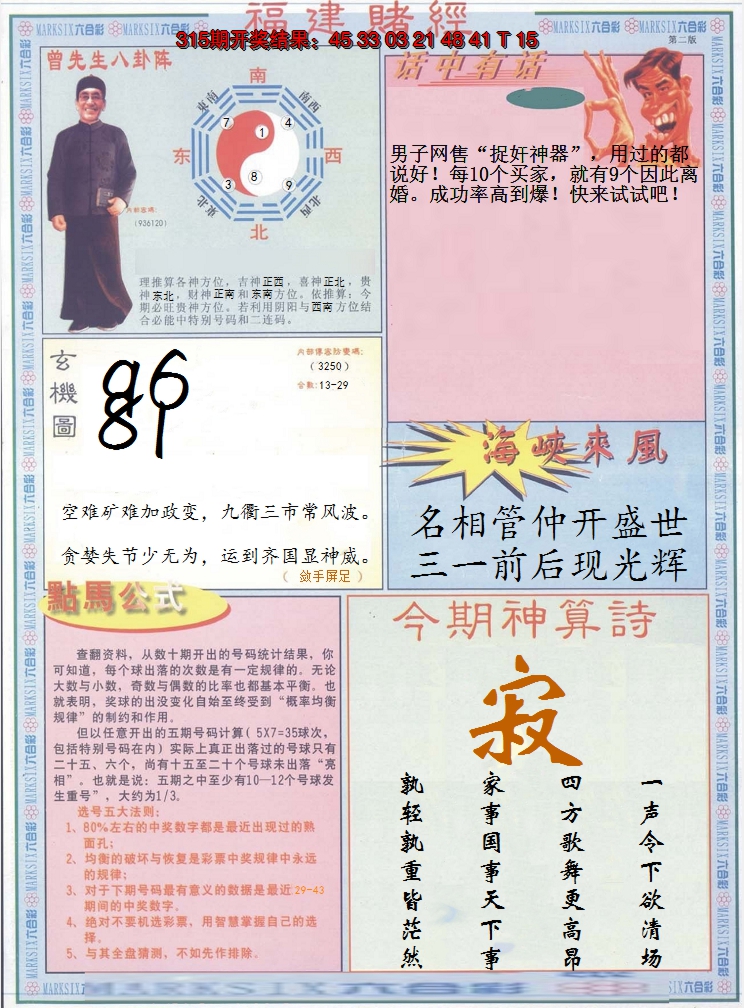 福建賭經
315期开奖结果：45 33 03 21 48 41 T 15
第二版
曾先生八卦阵
南
东南
南西
7
1
4
东
西
3
8
9
东北
北西
北
内部密碼：
（936120）
理推算各神方位，吉神正西，喜神正北，贵
神东北，财神正南和东南方位。依推算：今
期必旺贵神方位。若利用阴阳与西南方位结
合必能中特别号码和二连码。
话中有话
男子网售“捉奸神器”，用过的都
说好！每10个买家，就有9个因此离
婚。成功率高到爆！快来试试吧！
玄機圖
96
81
（3250）
合数:13-29
空难矿难加政变，九衢三市常风波。
贪婪失节少无为，运到齐国显神威。
（ 敛手屏足 ）
海峽來風
名相管仲开盛世
三一前后现光辉
點馬公式
查翻资料，从数十期开出的号码统计结果，你
可知道，每个球出落的次数是有一定规律的。无论
大数与小数，奇数与偶数的比率也都基本平衡。也
就表明，奖球的出没变化自始至终受到“概率均衡
规律”的制约和作用。
但以任意开出的五期号码计算( 5X7=35球次，
包括特别号码在内）实际上真正出落过的号球只有
二十五、六个，尚有十五至二十个号球未出落“亮
相”。也就是说：五期之中至少有10—12个号球发
生重号”，大约为1/3。
选号五大法则：
1、80%左右的中奖数字都是最近出现过的熟
面孔；
2、均衡的破坏与恢复是彩票中奖规律中永远
的规律；
3、对于下期号码最有意义的数据是最近29-43
期间的中奖数字。
4、绝对不要机选彩票，用智慧掌握自己的选
择。
5、与其全盘猜测，不如先作排除。
今期神算詩
寂
一声令下欲清场
四方歌舞更高昂
家事国事天下事
孰轻孰重皆茫然
MARKSIX六合彩